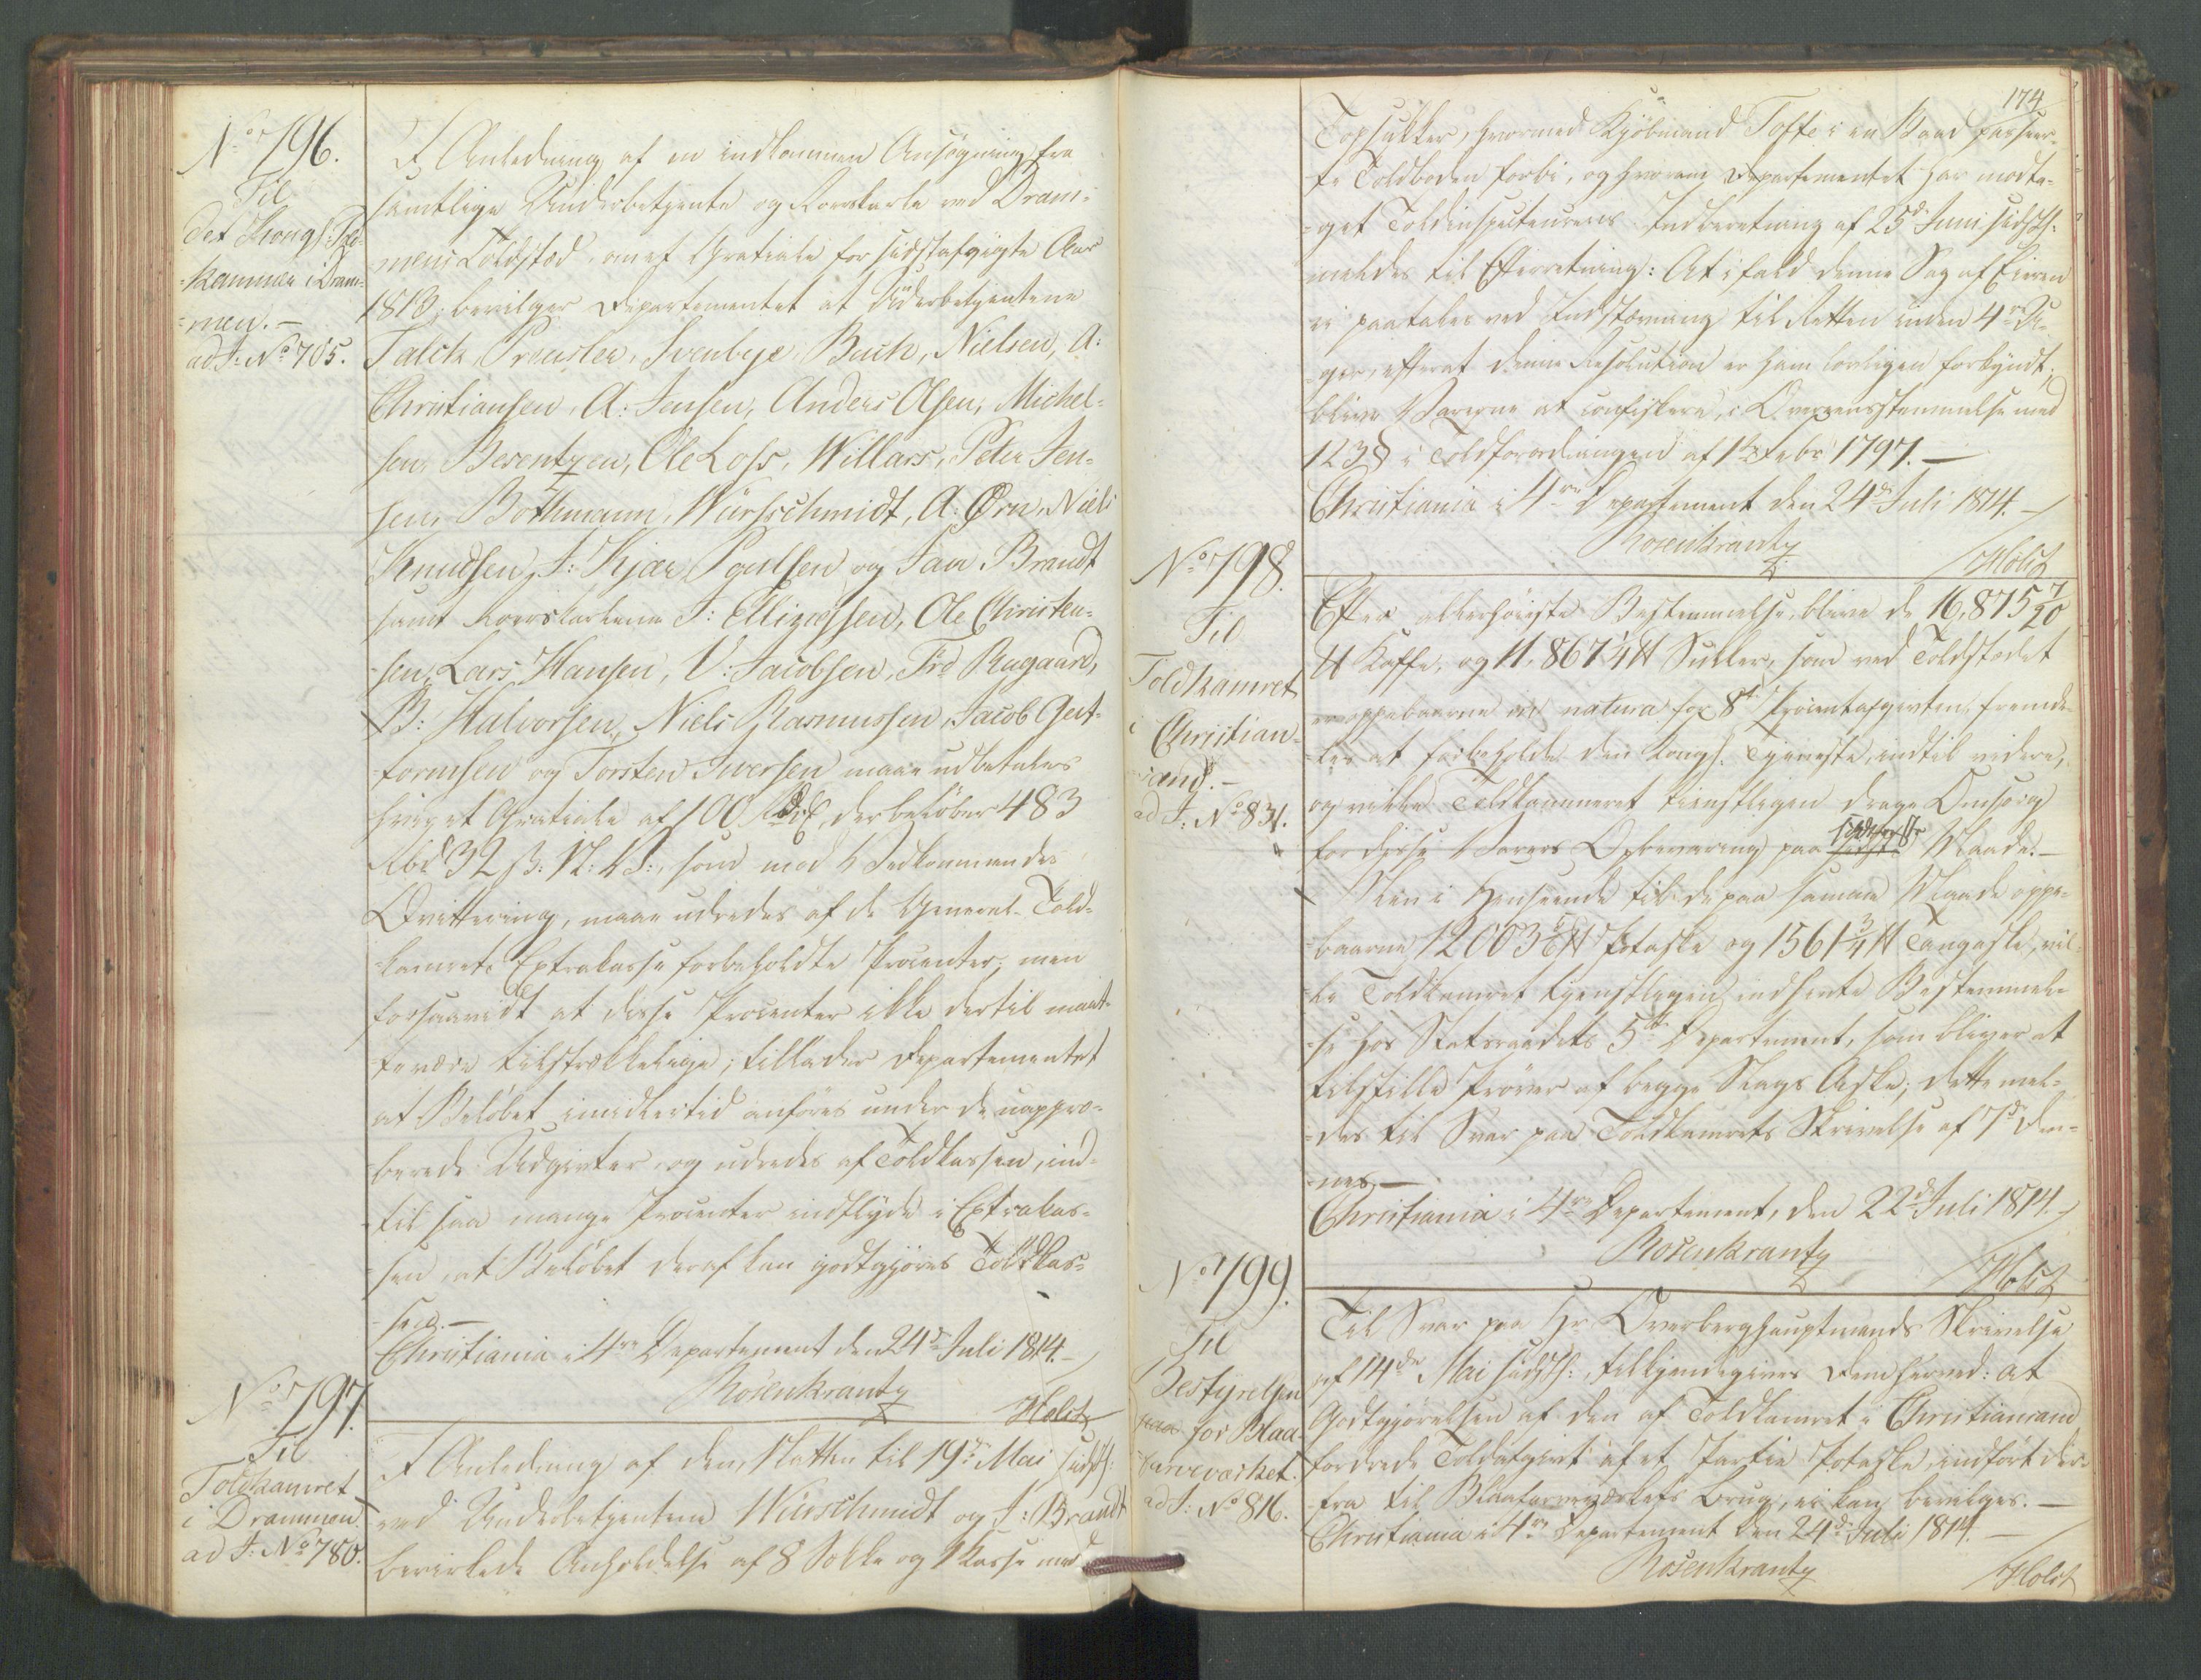 No 796.
Til
Det Kongl: Told-
kammer i Dram-
men.-
ad J: No 705.
I Anledning af en indkommen Ansøgning fra
samtlige Underbetjente og Roerskarle ved Dram-
mens Toldsted, om et Gratiale for sidstafvigte Aar
1813, bevilger Departementet at Underbetjentene
Falck, Preusler, Svenbye, Buch, Nielsen, A:
Christiansen, A: Jensen, Anders Olsen, Michel-
sen, Berentzen, Ole Loss, Willars, Peter Jen-
sen, Bothmann, Würschmidt, A: Ørn, Niels
Knudsen, J: Kjær, Poulsen og Faa Brandt
samt Roerskarlene J: Ellingsen, Ole Christen-
sen, Lars Hansen, V: Jacobsen, Frd Ragaard,
B: Halvorsen, Niels Rasmussen, Jacob Gut-
tormsen og Torsten Iversen maae udbetales
hver et Gratiale af 100 Rd, der beløber 483
Rbd 32 s: N: V:, som mod Vedkommendes
Qvittering, maae udredes af de General-Told-
kamrets Extrakasse forbeholdte Procenter; men
forsaavidt at disse Procenter ikke dertil maat-
te være tilstrækkelige; tillader Departementet
at Beløbet imidlertid anføres under de uappro-
berede Udgivter og udredes af Toldkassen, ind-
til saa mange Procenter indflyde i Extrakas-
sen, at Beløbet deraf kan godtgjøres Toldkas-
sen.-
Christiania i 4re Departement den 24de Juli 1814.-
Rosenkrantz
Holst
No 797.
Til
Toldkamret
i Drammen.
ad J: No 780.
I Anledning af den, Natten til 19de Mai sidstl:
ved Underbetjentene Würschmidt og J: Brandt
bevirkede Anholdelse af 8 Sække og 1 Kasse med
174
Topsukker, hvormed Kjøbmand Toffte i en Baad passeer-
te Toldboden forbi, og hvorom Departementet har modta-
get Toldinspecteurens Indberetning af 25de Juni sidstl:
meldes til Efterretning: At ifald denne Sag af Eieren
ei paatales ved Indstævning til Retten inden 4re U-
ger, efterat denne Resolution er ham lovligen forkyndt,
blive Varerne at confiskere, i Overeensstemmelse med
123 § i Toldforordningen af 1ste Febr 1797.-
Christiania i 4re Departement den 24de Juli 1814.-
Rosenkrantz
Holst
No 798.
Til
Toldkamret
i Christian-
sand.-
ad J: No 831.
Efter allerhøieste Bestemmelse, blive de 16,875 7/20
℔ Kaffe, og 11,867 1/4 ℔ Sukker, som ved Toldstedet
ere oppebaarne in natura for 8de Procentafgivten, fremde-
les at forbeholde den Kongl. Tjeneste, indtil videre,
og vilde Toldkammeret tienstligen drage Omsorg
for disse Varers Opbevaring paa sikkerste Maade.-
Men i Henseende til de paa samme Maade oppe-
baarne 12003 5/6 ℔ Potaske og 1561 3/4 ℔ Tangaske, vil-
de Toldkamret tjenstligen indhente Bestemmel-
se hos Statsraadets 5te Departement, som bliver at
tilstille Prøver af begge Slags Aske; dette mel-
des til Svar paa Toldkamrets Skrivelse af 7de den-
nes.-
Christiania i 4re Departement, den 22de Juli 1814.-
Rosenkrantz
Holst
No 799.
Til
Bestyrelsen
for Blaa-
farveværket.
ad J: No 816.
Til Svar paa Hr Overberghauptmands Skrivelse
af 14de Mai sidstl:, tilkjendegives Dem herved: at
Godtgjørelsen af den af Toldkamret i Christiansand
fordrede Toldafgivt af et Partie Potaske, indført der-
fra til Blaafarveværkets Brug, ei kan bevilges.-
Christiania i 4re Departement den 24de Juli 1814.-
Rosenkrantz
Holst